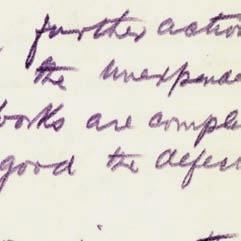 further action
the unexpende
works are comple
good the defect